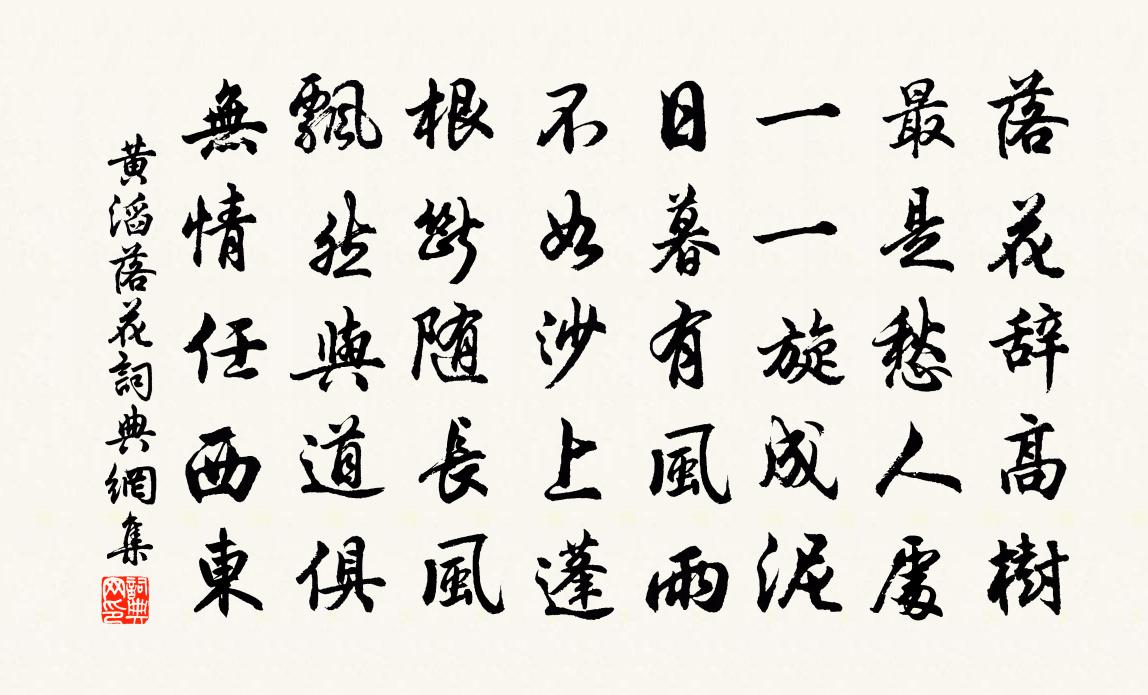 落花辞高樹
最是愁人處
一一旋成泥
日暮有風雨
不如沙上蓬
根斷随長風
飄然與道俱
無情任西東
黄滔落花詞典網集
詞典網印